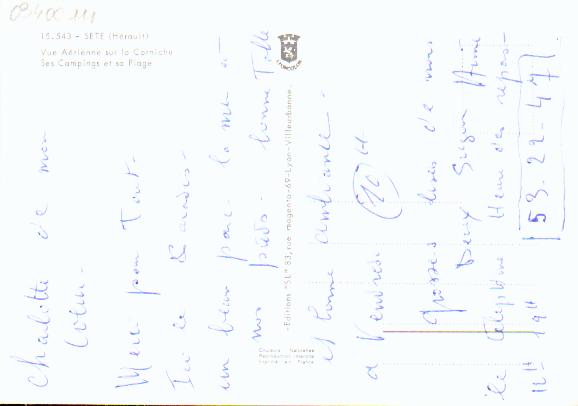 03400 111
15.543 - SETE (Hérault)
Vue Aérienne sur la Corniche
Ses Campings et sa Plage
Editions "SL" 83, rue magenta-69-Lyon-Villeurbanne
Couleurs Naturelles
Reproduction Interdite
Imprimé en France
Charlotte de mon
Coeur.
Merci pour Tout.
Ici le Paradis.
un beau parc la mer à
nos pieds. bonne Table
et bonne ambiance.
a Vendredi 10 H
Grosses bises de nous
Deux Suzon Aimé
le Téléphone Heure des repas.
12H 19H 53.22-47